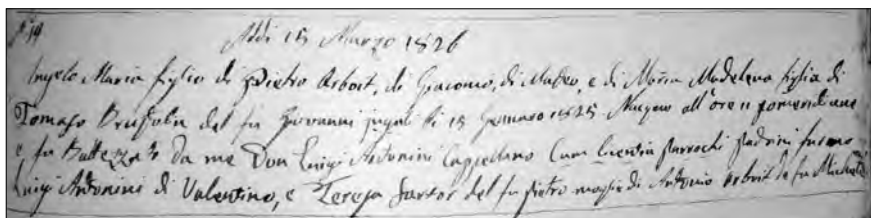 N. 19
Addi 15 Marzo 1826
Angelo Maria figlio di Pietro Arboit, di Giacomo, di Matteo, e di Maria Madalena figlia di
Tomaso Brustolin del fu Giovanni jugali li 15 Gennaro 1825 Nacque all'ore 11 pomeridiane
e fu Battezzato da me Don Luigi Antonini Capellano Cum licentia Parrochi Padrini furono
Luigi Antonini di Valentino, e Teresa Sartor del fu Pietro moglie di Antonio Arboit fu Michele